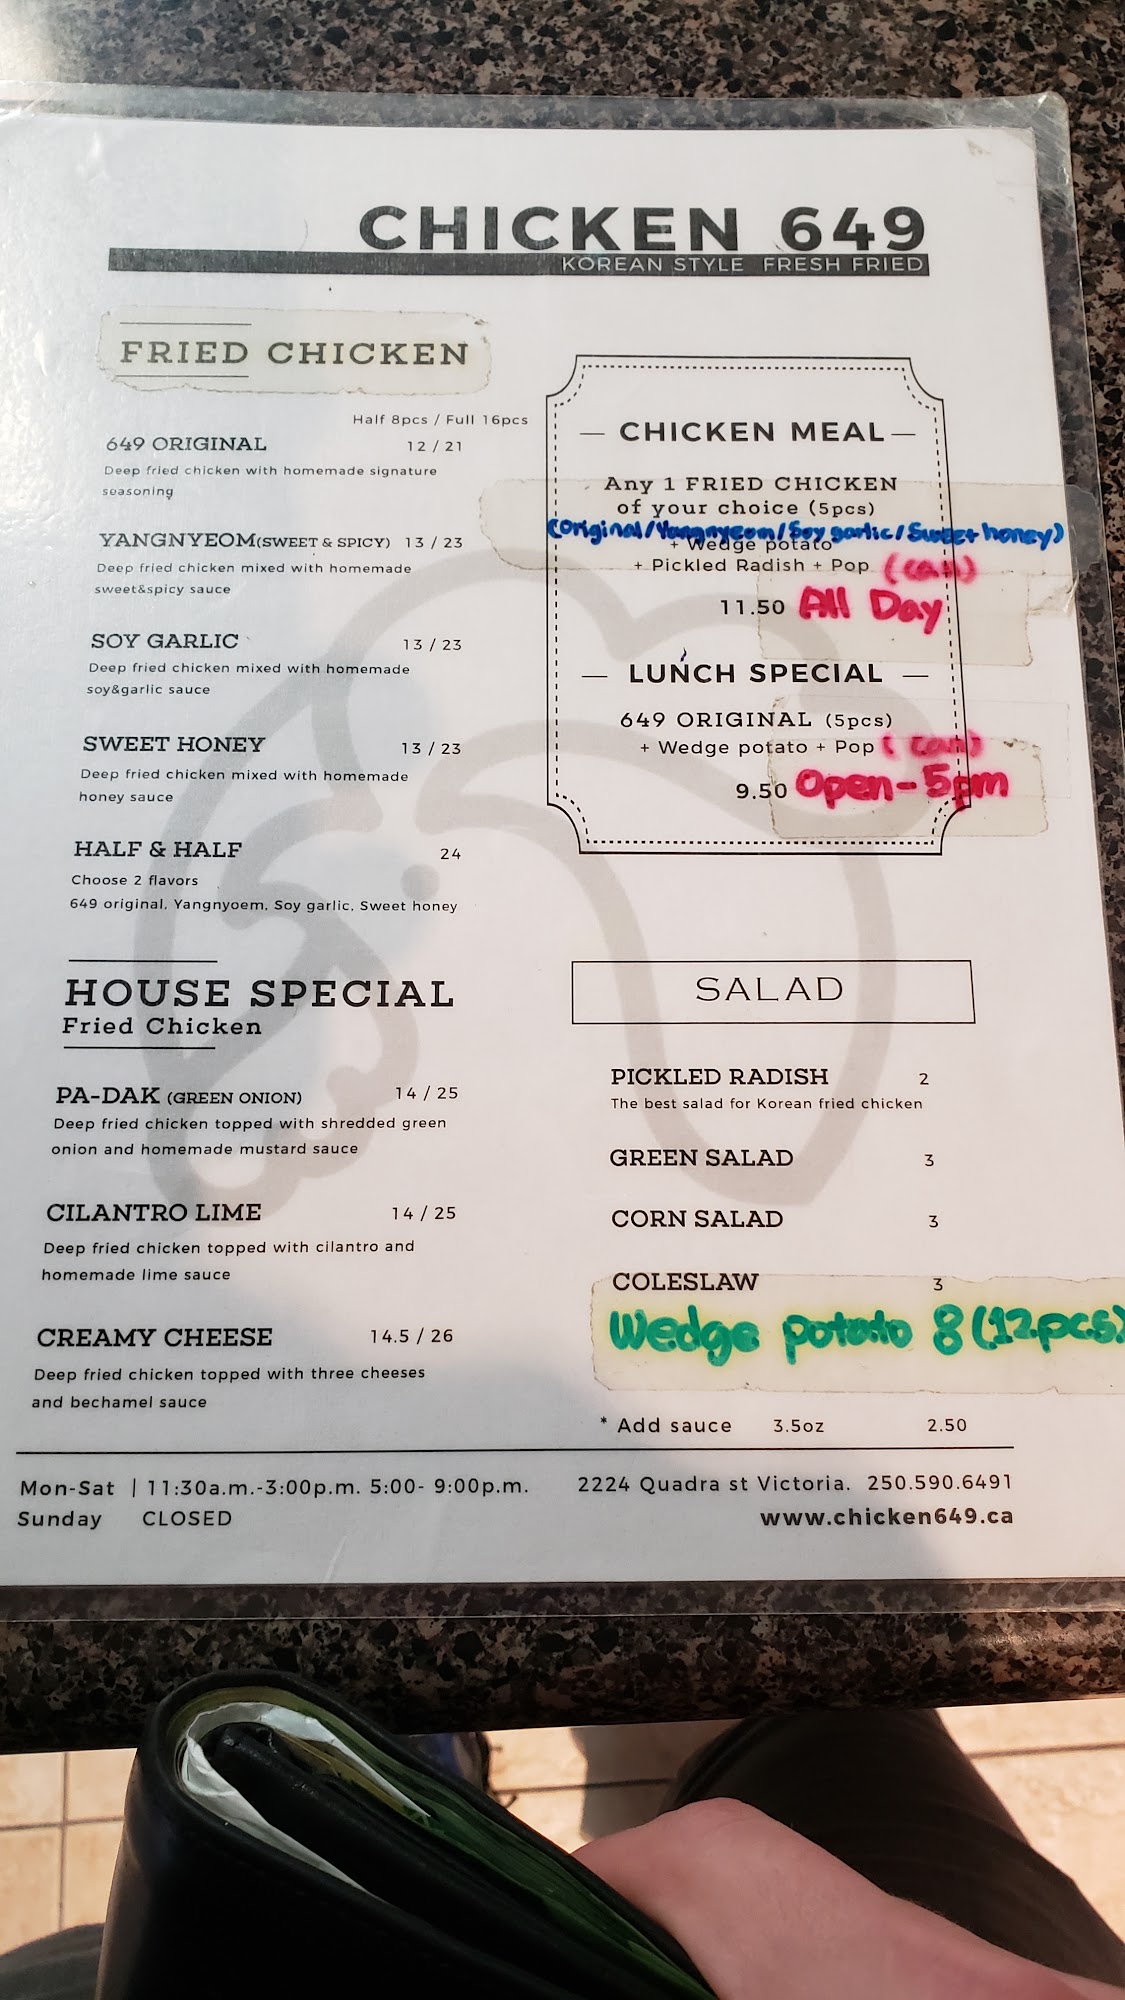 CHICKEN 649
KOREAN STYLE FRESH FRIED
FRIED CHICKEN
Half 8pcs / Full 16pcs
649 ORIGINAL 12 / 21
Deep fried chicken with homemade signature
seasoning
YANGNYEOM(SWEET & SPICY) 13 / 23
Deep fried chicken mixed with homemade
sweet&spicy sauce
SOY GARLIC 13 / 23
Deep fried chicken mixed with homemade
soy&garlic sauce
SWEET HONEY 13 / 23
Deep fried chicken mixed with homemade
honey sauce
HALF & HALF 24
Choose 2 flavors
649 original, Yangnyoem, Soy garlic, Sweet honey
HOUSE SPECIAL
Fried Chicken
PA-DAK (GREEN ONION) 14 / 25
Deep fried chicken topped with shredded green
onion and homemade mustard sauce
CILANTRO LIME 14 / 25
Deep fried chicken topped with cilantro and
homemade lime sauce
CREAMY CHEESE 14.5 / 26
Deep fried chicken topped with three cheeses
and bechamel sauce
— CHICKEN MEAL —
Any 1 FRIED CHICKEN
of your choice (5pcs)
(original/Yangnyeom/Soy garlic/Sweet honey)
+ Wedge potato
+ Pickled Radish + Pop (can)
11.50 All Day
— LUNCH SPECIAL —
649 ORIGINAL (5pcs)
+ Wedge potato + Pop (can)
9.50 Open-5pm
SALAD
PICKLED RADISH 2
The best salad for Korean fried chicken
GREEN SALAD 3
CORN SALAD 3
COLESLAW 3
Wedge potato 8 (12pcs)
* Add sauce 3.5oz 2.50
Mon-Sat | 11:30a.m.-3:00p.m. 5:00- 9:00p.m.
Sunday CLOSED
2224 Quadra st Victoria. 250.590.6491
www.chicken649.ca